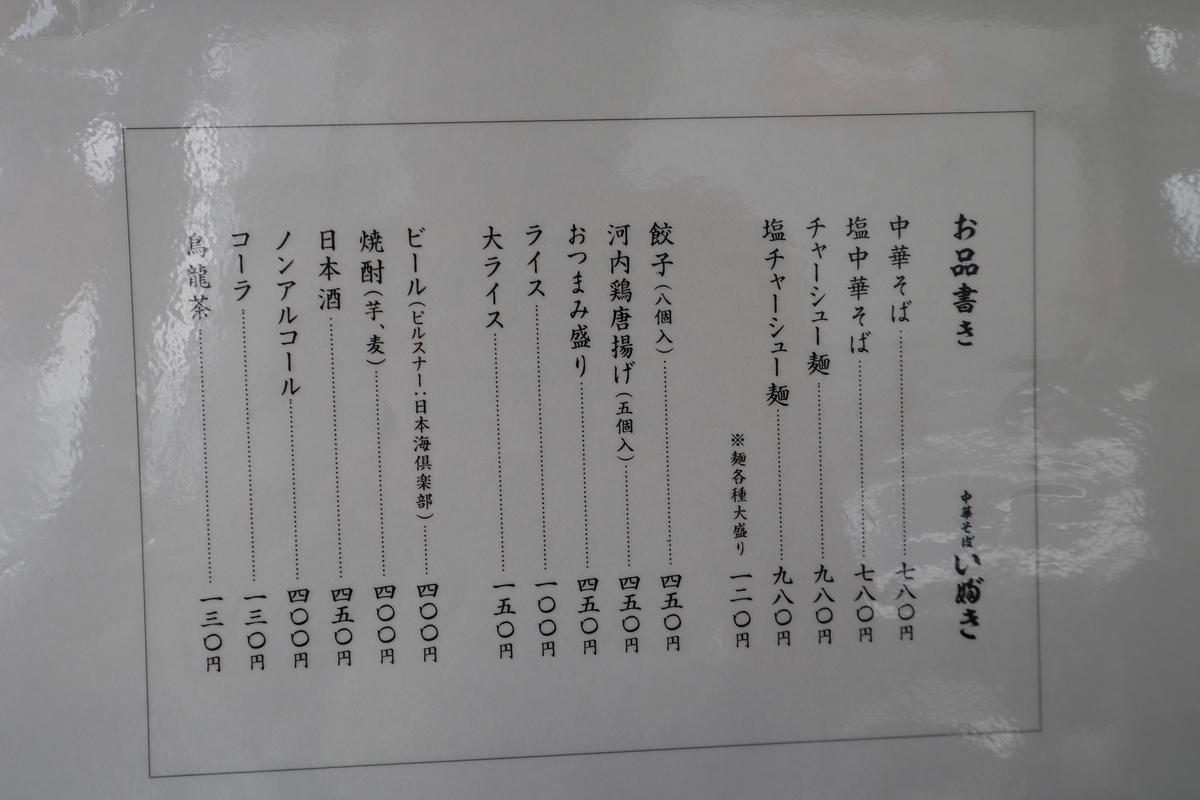 お品書き
中華そば いぶき
中華そば 七八〇円
塩中華そば 七八〇円
チャーシュー麺 九八〇円
塩チャーシュー麺 九八〇円
※麺各種大盛り 一二〇円
餃子(八個入) 四五〇円
河内鶏唐揚げ(五個入) 四五〇円
おつまみ盛り 四五〇円
ライス 一〇〇円
大ライス 一五〇円
ビール(ピルスナー:日本海倶楽部) 四〇〇円
焼酎(芋、麦) 四〇〇円
日本酒 四五〇円
ノンアルコール 四〇〇円
コーラ 一三〇円
烏龍茶 一三〇円